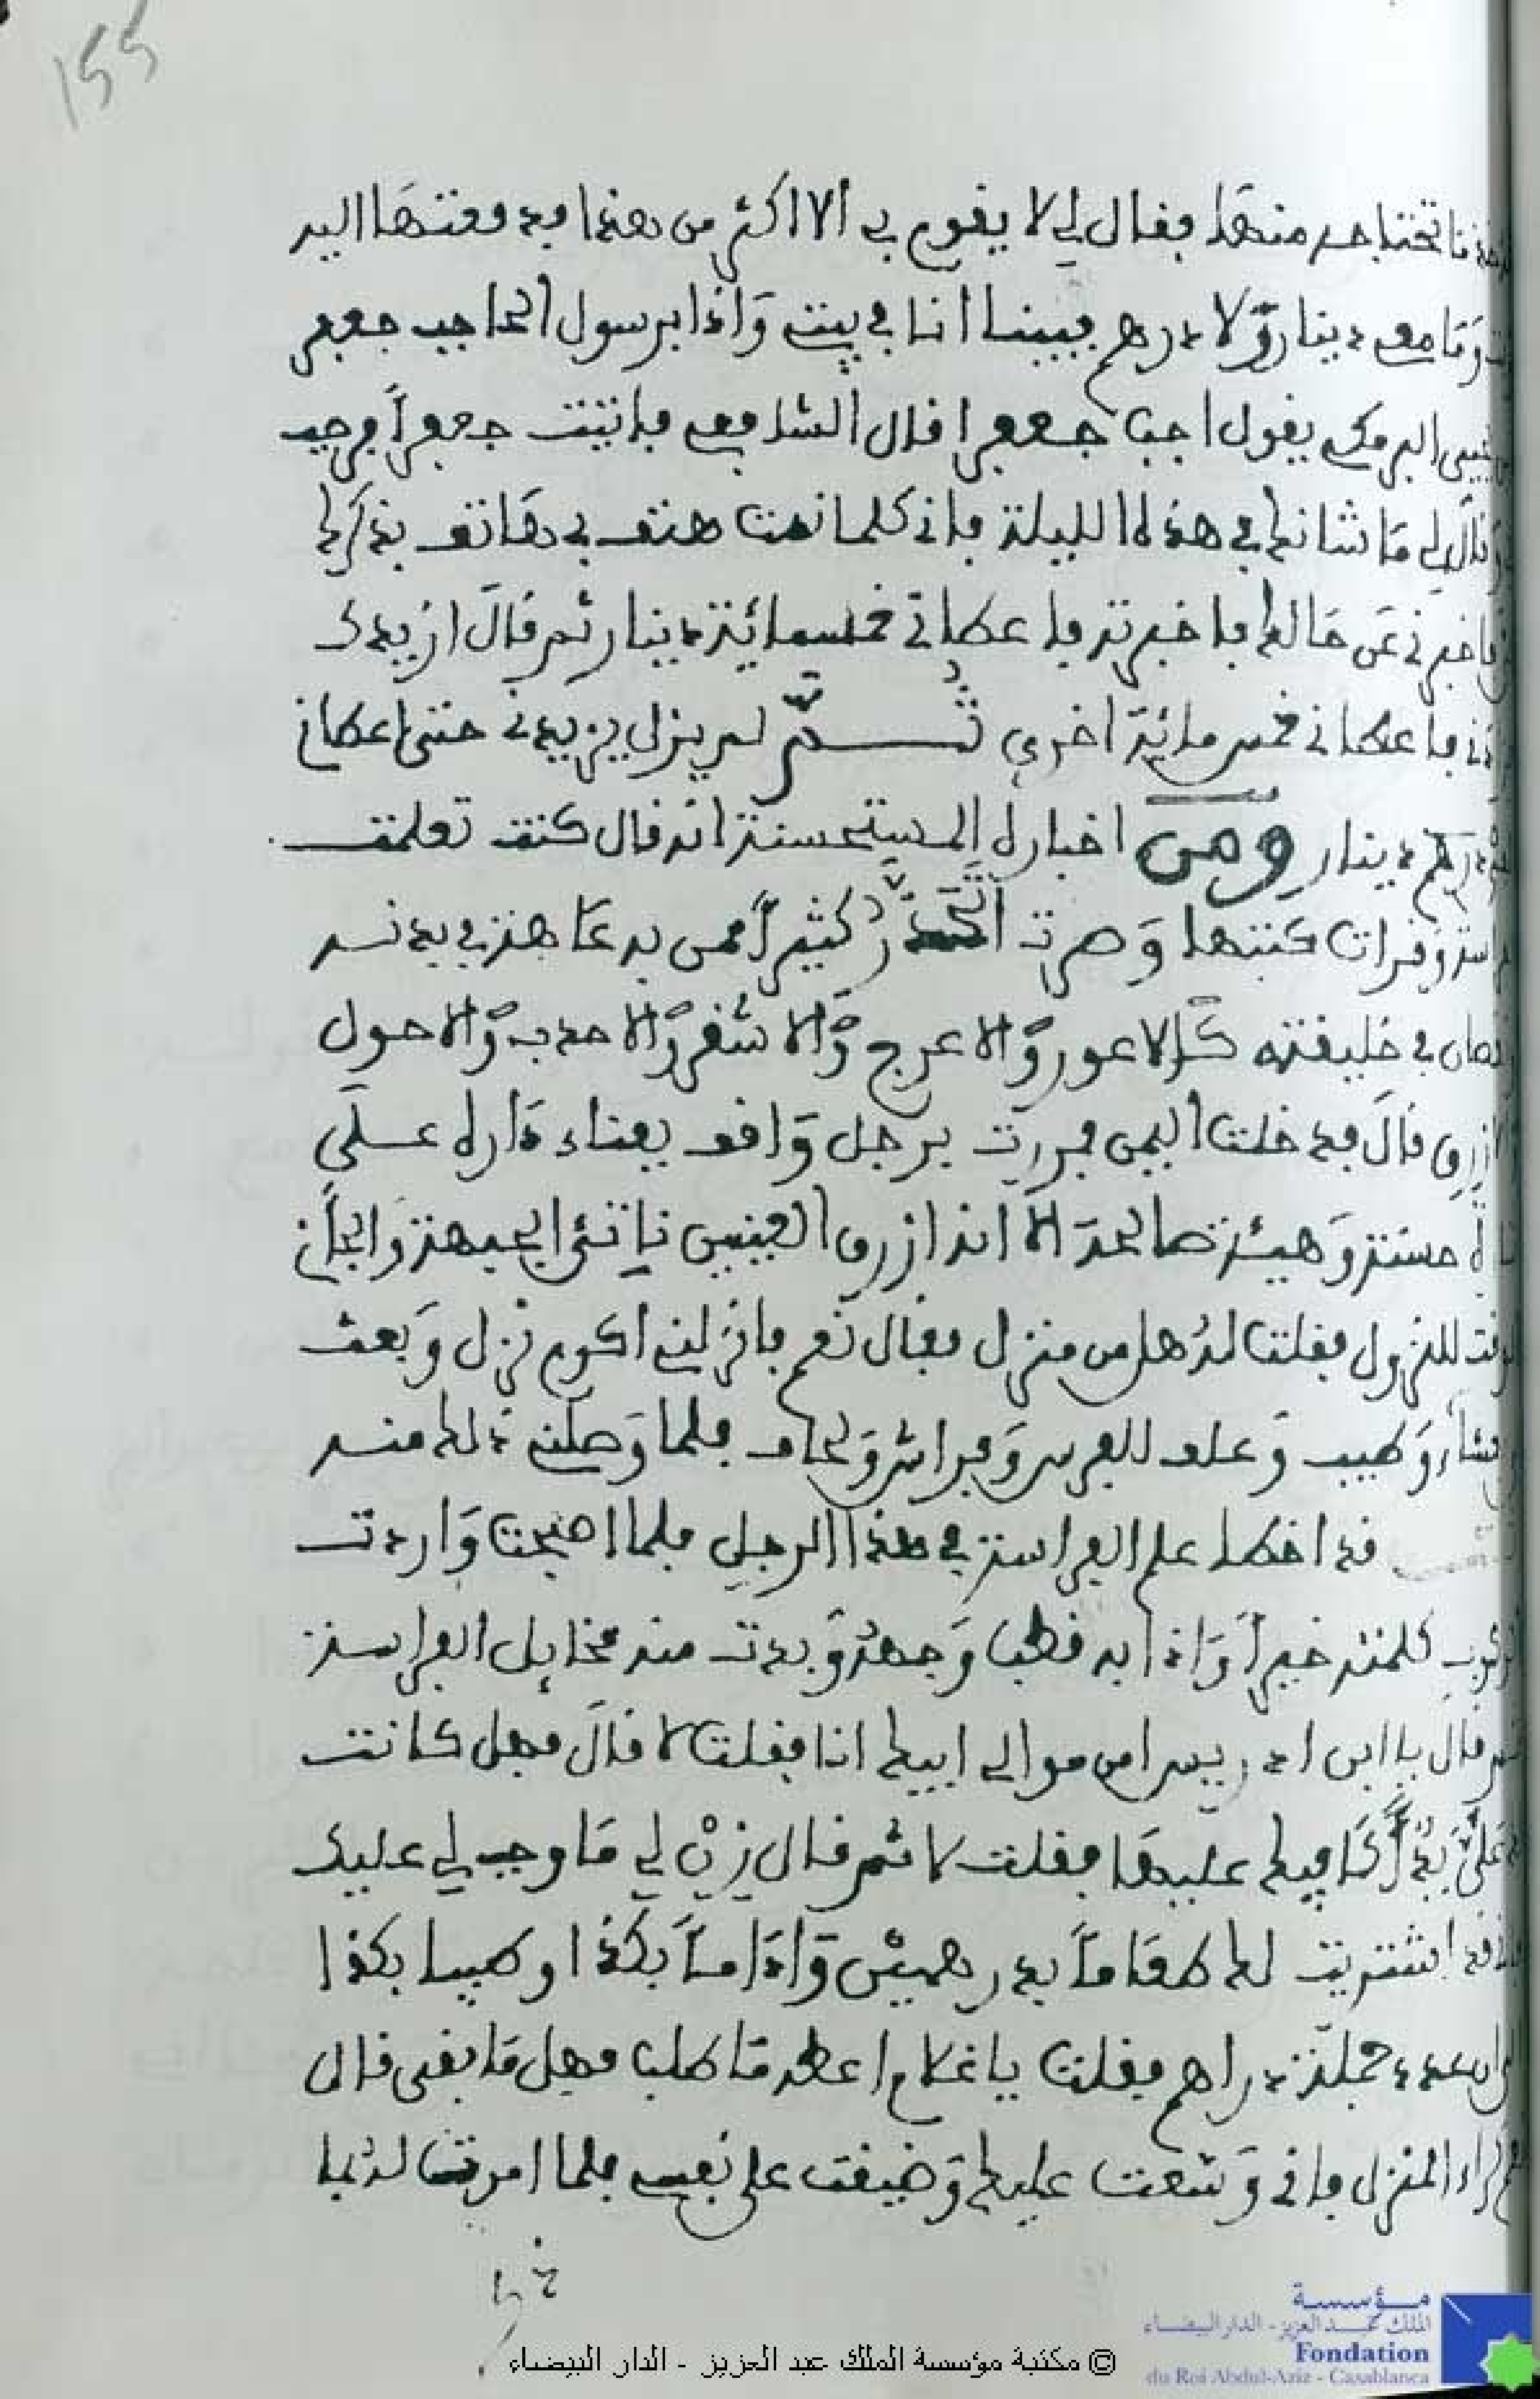 155
ما تحتاج منها فقال لي لا يقوم بي ألا اكثر من هذا فدفعتها اليه
وَمَا معي دينار وَّلا درهم فبينا انا في بيتي وَاذا برسول الحاجب جعفر
البرمكي يقول اجب جعفرا قال الشافعي فاتيت جعفراً فرحب
وقال لي مَا شانك في هذه الليلة فاني كلما نمت هتف بي هَاتف بذكرك
فاخبرني عَن حَالك فاخبرته فاعطاني خمسمائة دينار ثم قالَ ازيدك
فاعطاني خمس مائة اخرى ثـــم لم يزل يزيدني حتى اعطاني
دينار ومن اخباره المستحسنة انه قال كنت تعلمت
وقرات كتبها وَصرت احذر كثيراً ممن به عَاهة في بدنه
في خليقته كَالاعور وَّالاعرج وَّالاشقر وَّالاحدب وَّالاحول
قالَ فدخلت اليمن فمررت برجل وَاقف بفناء دَاره علَى
حسنة وَهيئة صالحة الا انه ازرق العينين ناتئ الجبهة
للنزول فقلت له هل من منزل فقال نعم فانزلني اكرم نزل وَبعث
وَطيب وَعلف للفرس وَفراش وَلحاف فلما وَصلني ذلك منه
قد اخطا علم الفراسة في هذا الرجل فلما اصبحت وَاردت
كلمته خيراً وَاذا به قطب وَجهه وَبدت منه مخايل الفراسة
قال يا ابن ادريس امن موالي ابيك انا فقلت لا قالَ فهل كانت
عليها فقلت لا ثم قال زن لي مَا وجب لي عليك
اشتريت لك طعَاماً بدرهمين وَاداماً بكذا وطيبا بكذا
جملة دراهم فقلت يا غلام اعطه مَا طلب فهل مَا بقي قال
المنزل فاني وَسعت عليك وَضيقت على نفسي فلما امرت له بما
© مكتبة مؤسسة الملك عبد العزيز - الدار البيضاء
مؤسسة
الملك عبد العزيز - الدار البيضاء
Fondation
du Roi Abdul-Aziz - Casablanca